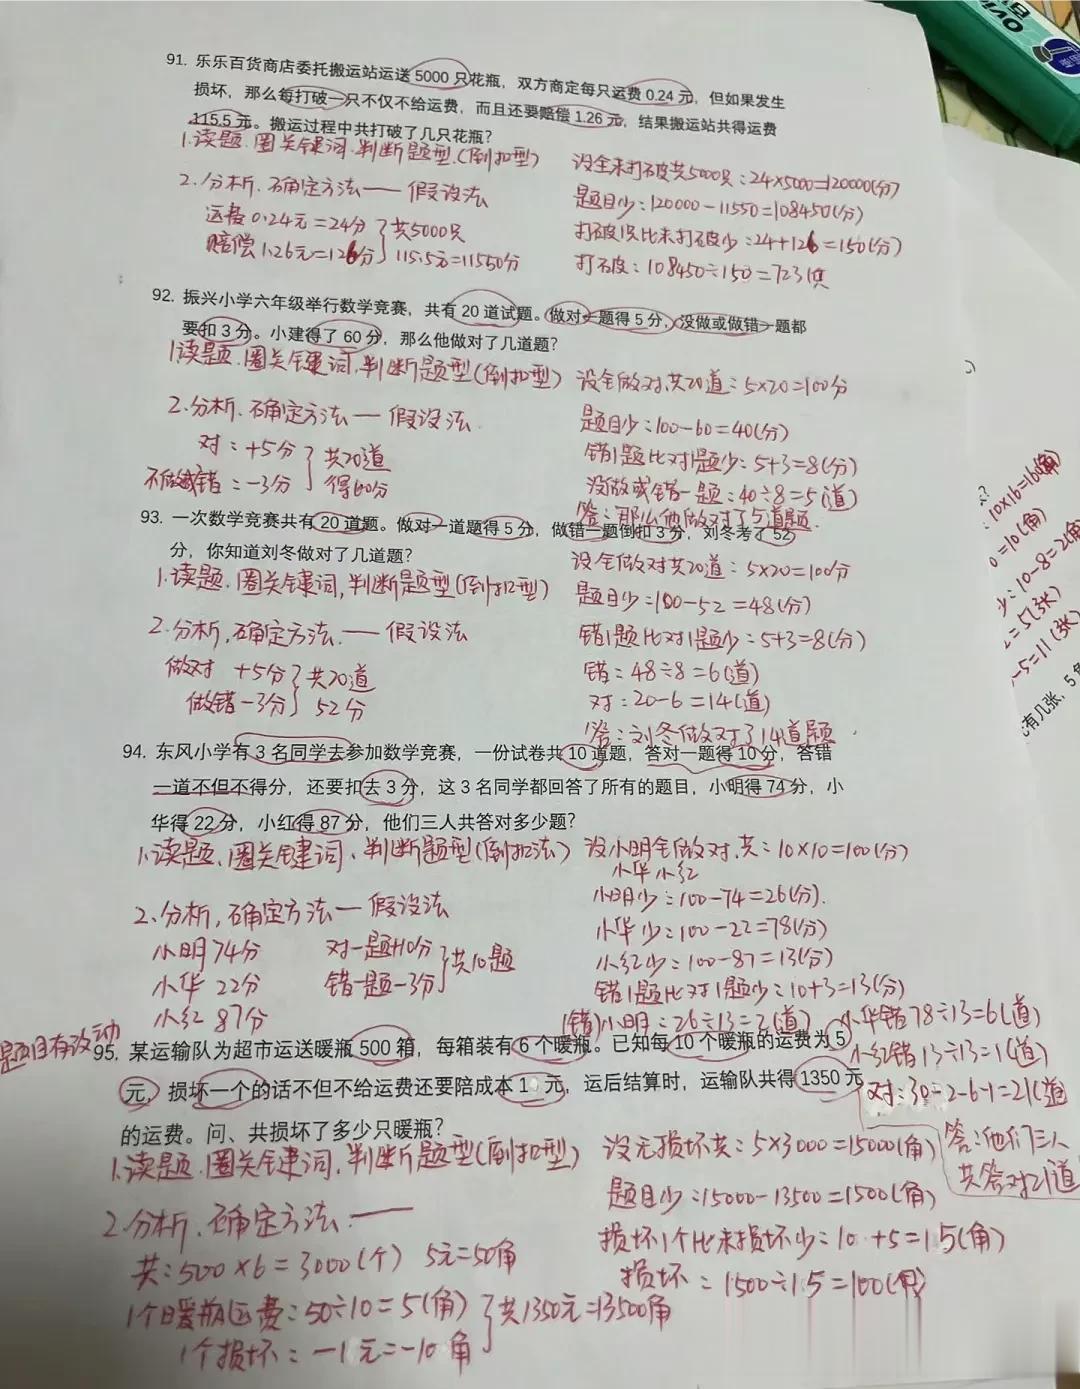 91. 乐乐百货商店委托搬运站运送 5000 只花瓶，双方商定每只运费 0.24 元，但如果发生
损坏，那么每打破一只不仅不给运费，而且还要赔偿 1.26 元，结果搬运站共得运费
115.5 元。搬运过程中共打破了几只花瓶？
1.读题.圈关键词.判断题型.(倒扣型)
设全未打破共5000只：24×5000=120000(分)
2.分析.确定方法——假设法
题目少：120000-11550=108450(分)
运费0.24元=24分
共5000只
打破1只比未打破少：24+126=150(分)
赔偿1.26元=126分
115.5元=11550分
打破：108450÷150=723只
92. 振兴小学六年级举行数学竞赛，共有 20 道试题。做对一题得 5 分，没做或做错一题都
要扣 3 分。小建得了 60 分，那么他做对了几道题？
1.读题.圈关键词.判断题型(倒扣型)
设全做对.共20道：5×20=100分
2.分析.确定方法——假设法
题目少：100-60=40(分)
对：+5分
共20道
错1题比对1题少：5+3=8(分)
不做或错：-3分
得60分
没做或错一题：40÷8=5(道)
答：那么他做对了5道题.
93. 一次数学竞赛共有 20 道题。做对一道题得 5 分，做错一题倒扣 3 分，刘冬考了 52
分，你知道刘冬做对了几道题？
1.读题.圈关键词,判断题型(倒扣型)
设全做对共20道：5×20=100分
题目少：100-52=48(分)
2.分析,确定方法.——假设法
错1题比对1题少：5+3=8(分)
做对 +5分
共20道
错：48÷8=6(道)
做错-3分
52分
对：20-6=14(道)
答：刘冬做对了14道题
94. 东风小学有 3 名同学去参加数学竞赛，一份试卷共 10 道题，答对一题得 10 分，答错
一道不但不得分，还要扣去 3 分，这 3 名同学都回答了所有的题目，小明得 74 分，小
华得 22 分，小红得 87 分，他们三人共答对多少题？
1.读题.圈关键词.判断题型(倒扣法)
设小明全做对.共：10×10=100(分)
小华 小红
小明少：100-74=26(分).
2.分析,确定方法——假设法
小华少：100-22=78(分)
小明74分
对一题+10分
共10题
小红少：100-87=13(分)
小华 22分
错一题-3分
错1题比对1题少：10+3=13(分)
小红 87分
(错)小明：26÷13=2(道)
小华错78÷13=6(道)
小红错13÷13=1(道)
对：30-2-6-1=21(道
答：他们三人
共答对21道
题目有改动
95. 某运输队为超市运送暖瓶 500 箱，每箱装有 6 个暖瓶。已知每 10 个暖瓶的运费为 5
元，损坏一个的话不但不给运费还要陪成本 1 元，运后结算时，运输队共得 1350 元
的运费。问、共损坏了多少只暖瓶？
1.读题.圈关键词,判断题型(倒扣型)
设无损坏共：5×3000=15000(角)
题目少：15000-13500=1500(角)
2.分析.确定方法.——
损坏1个比未损坏少：10+5=15(角)
共：500×6=3000(个)
5元=50角
损坏：1500÷15=100(只)
1个暖瓶运费：50÷10=5(角)
共1350元=13500角
1个损坏：-1元=-10角
10×16=160(角)
=10(角)
10-8=2(角
=5(张)
-5=11(张)
元有几张，5